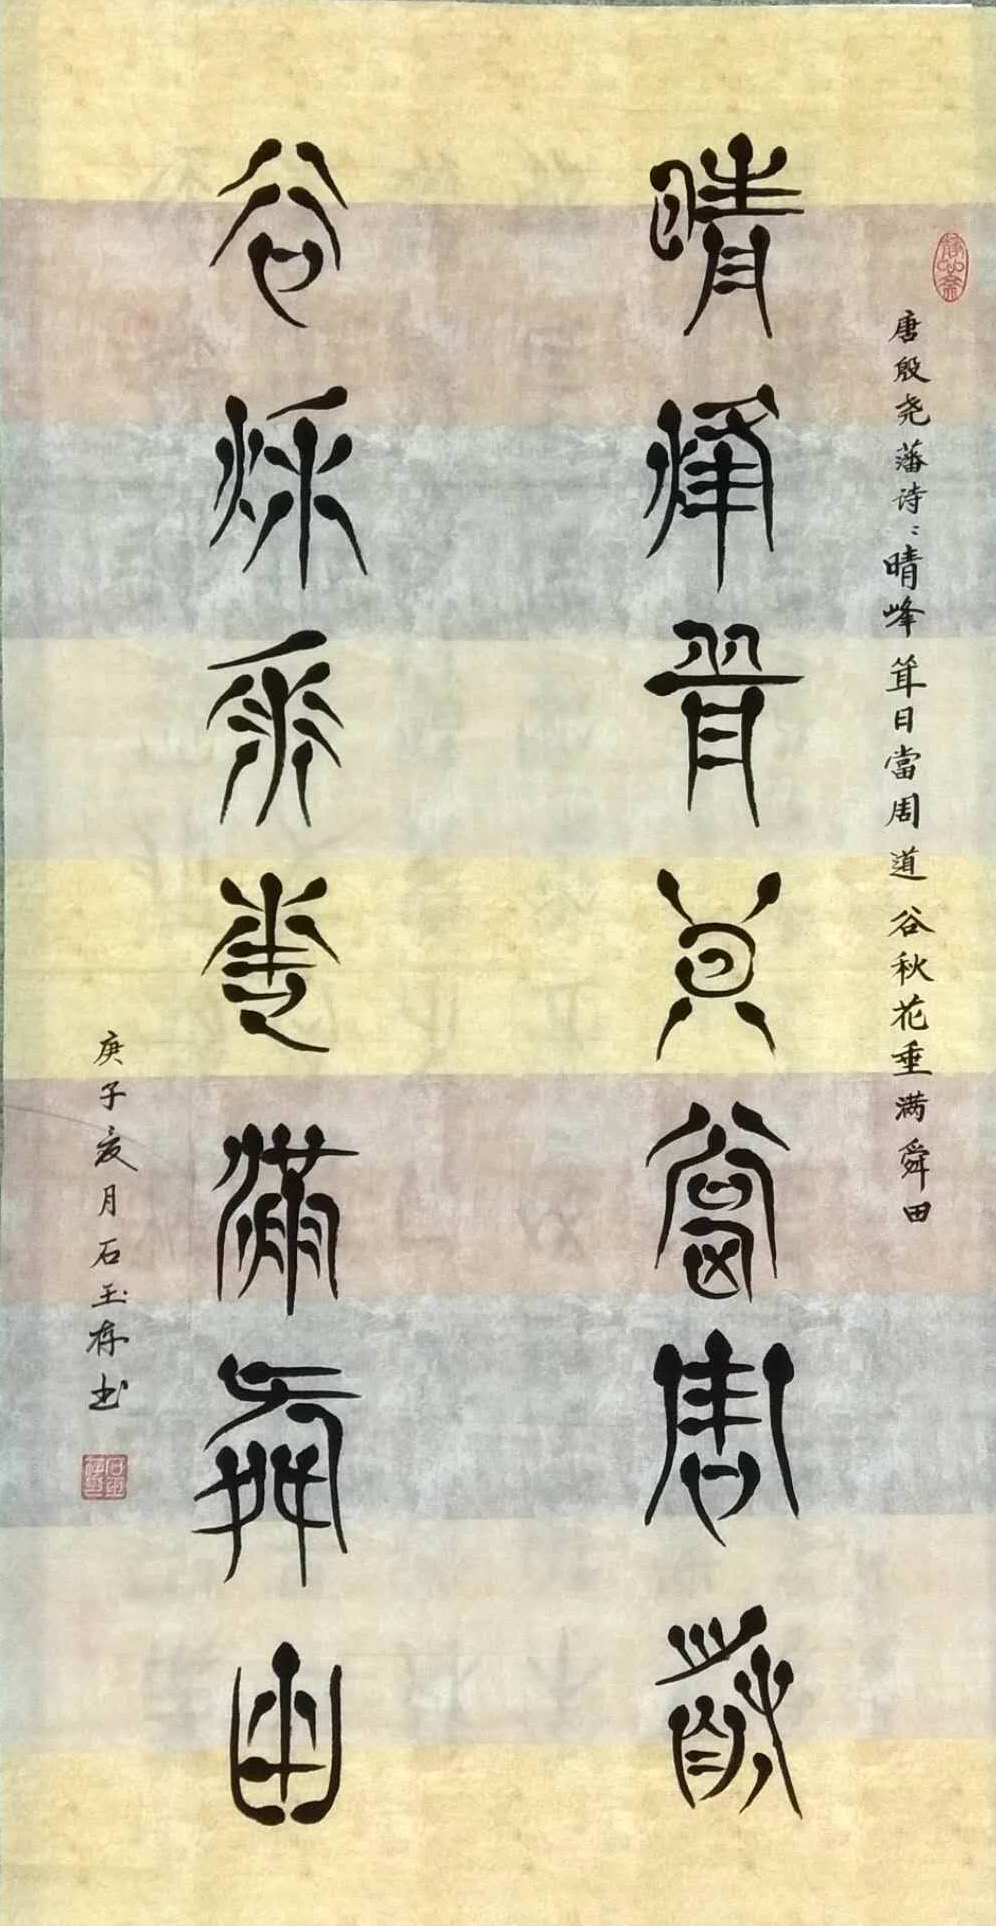 唐殷尧藩诗：晴峰耸日當周道谷秋花垂满舜田
晴峰耸日當周道
谷秋垂花满舜田
庚子亥月石玉存书